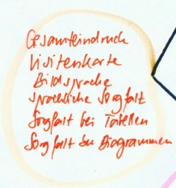 Gesamteindruck
Visitenkarte
Bildsprache
sprachliche Sorgfalt
Sorgfalt bei Tabellen
Sorgfalt bei Diagrammen